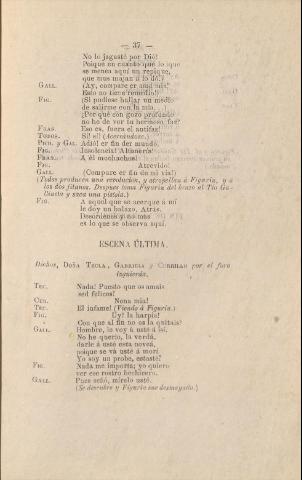 — 37 —
No lo jaguste por Dió!
Poique en cuanto que lo que
se menea aquí un repique,
que mus majan a lo dó!?
GALL. (Ay, compare er mal mís!
Esto no tiene remedio!)
FIG. (Si pudiese hallar un medio
de salirme con la mía...)
¿Por qué con gozo profundo
no he de ver tu hermoso, fas?
FRAS. Eso es, fuera el antifas!
TODOS. Sí! sí! (Acercándose.)
PICH. y GAL. Adió! er fin der mundo.
FIG. Insolencia! Altanería!
FRAS. A él muchachos!
FIG. Atrevido!
GALL. (Compare er fin de mi via!)
(Todos producen una revolucion, y atropellan á Figuría, y a
los dos jitanos. Despues toma Figuria del brazo el Tío Ga-
llardo y saca una pistola.)
FIG. A aquel que se acerque á mí
le doy un balazo. Atrás.
Desórdenes y no mas
es lo que se observa aquí.
ESCENA ÚLTIMA.
Dichos, DOÑA TECLA, GABRIELA y CIRRILAO por el foro
izquierda.
TEC. Nada! Puesto que os amais
sed felices!
CIR. Nona mia!
TEC. El infame! (Viendo á Figuría.)
FIG. Uy! la harpía!
Con que al fin no os la quitais!
GALL. Hombre, le voy á uste á isí.
No he querío, la verdá,
darle á usté esta noveá,
poique se vá usté á morí
Yo soy un probe, estasté?
FIG. Nada me importa; yo quiero
ver ese rostro hechicero.
GALL. Pues señó, mírelo usté.
(Se descubre y Figuría cae desmayado.)